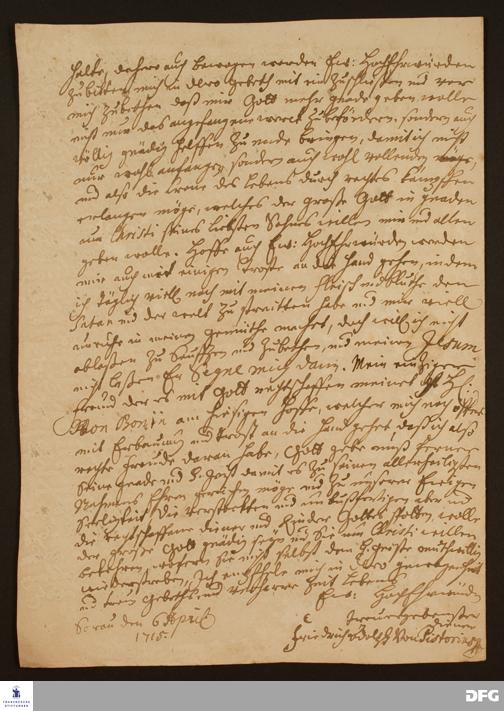 halte, dahero auch bewogen worden Ew: Hochehrwürden
zu bitten mich in dero gebeth mit ein zu schließen und vor
mich zu bethen daß mir Gott mehr gnade geben wolle
nicht nur das angefangene werck zu befördern, sondern auch
völlig gnädig helffen zu ende bringen, damit ich nicht
nur wohl anfange, sondern auch wohl vollenden möge,
und alß die Crone des Lebens durch rechtes kämpffen
erlangen möge, welches der große Gott in gnaden
um Christi seines liebsten Sohnes willen mir und allen
geben wolle. Hoffe auch Ew: Hochehrwürden werden
mir auch mit einigen Troste an die Hand gehen, indem
ich täglich viell noch mit meinen fleisch und bluthe dem
Satan und der welt zu streitten habe und mir viell
unruhe in meinen gemüthe machet, doch will ich nicht
ablaßen zu seuffzen und zu bethen, und meinen Jesum
nicht laßen Er segne mich dann. Mein einziger
freund der es mit Gott rechtschaffen meinet ist H:
Von Bonin am hiesigen Hoffe, welcher mich noch öffters
mit Erbauung und Trost an die Hand gehet, daß ich alß
rechte freude daran habe, Gott gebe nur ferner
seine gnade und H. Geist damit es zu seines allerheiligsten
Nahmens Ehren gereichen möge und zu unserer Ewigen
Seeligkeit die verstockten und unbußfertigen aber und
die rechtschaffene diener und Kinder Gottes
der große Gott gnädig segnen Sie um Christi willen
bekehren, wofern Sie nicht selbst dem H. Geiste muthwillig
wiederstreben, Ich empfehle mich in dero
und treu gebeth und verharre Zeit Lebens
Ew: Hochehrwürden
treuergebenster
diener
Friedrich Adolph Von Pistoris
Sorau den 6 April
1715.
FRANCKESCHE
STIFTUNGEN
DFG